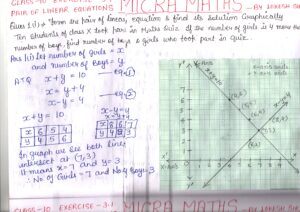 CLASS-10 EXERCISE
MICRA MATHS
PAIR OF LINEAR EQUATIONS
-BY LOKESH
Ques 1.(i) Form the pair of linear equations & find its solution Graphically
Ten students of class X took part in Maths Quiz. If the number of girls is 4 more than
number of boys, find number of boys & girls who took part in Quiz.
Ans 1.(i) Let number of girls = x
and number of Boys = y
ATQ x+y = 10 eq 1
x = y+4
x-y = 4 eq 2
x+y = 10
x-y=4
x=y+4
x 6 5 4
y 4 5 6
x 8 6 7
y 4 2 3
In graph we see both lines
intersect at (7,3)
It means x=7 and y=3
∴ No of Girls = 7 and No of Boys = 3
CLASS-10 EXERCISE-3.1
MICRA MATHS